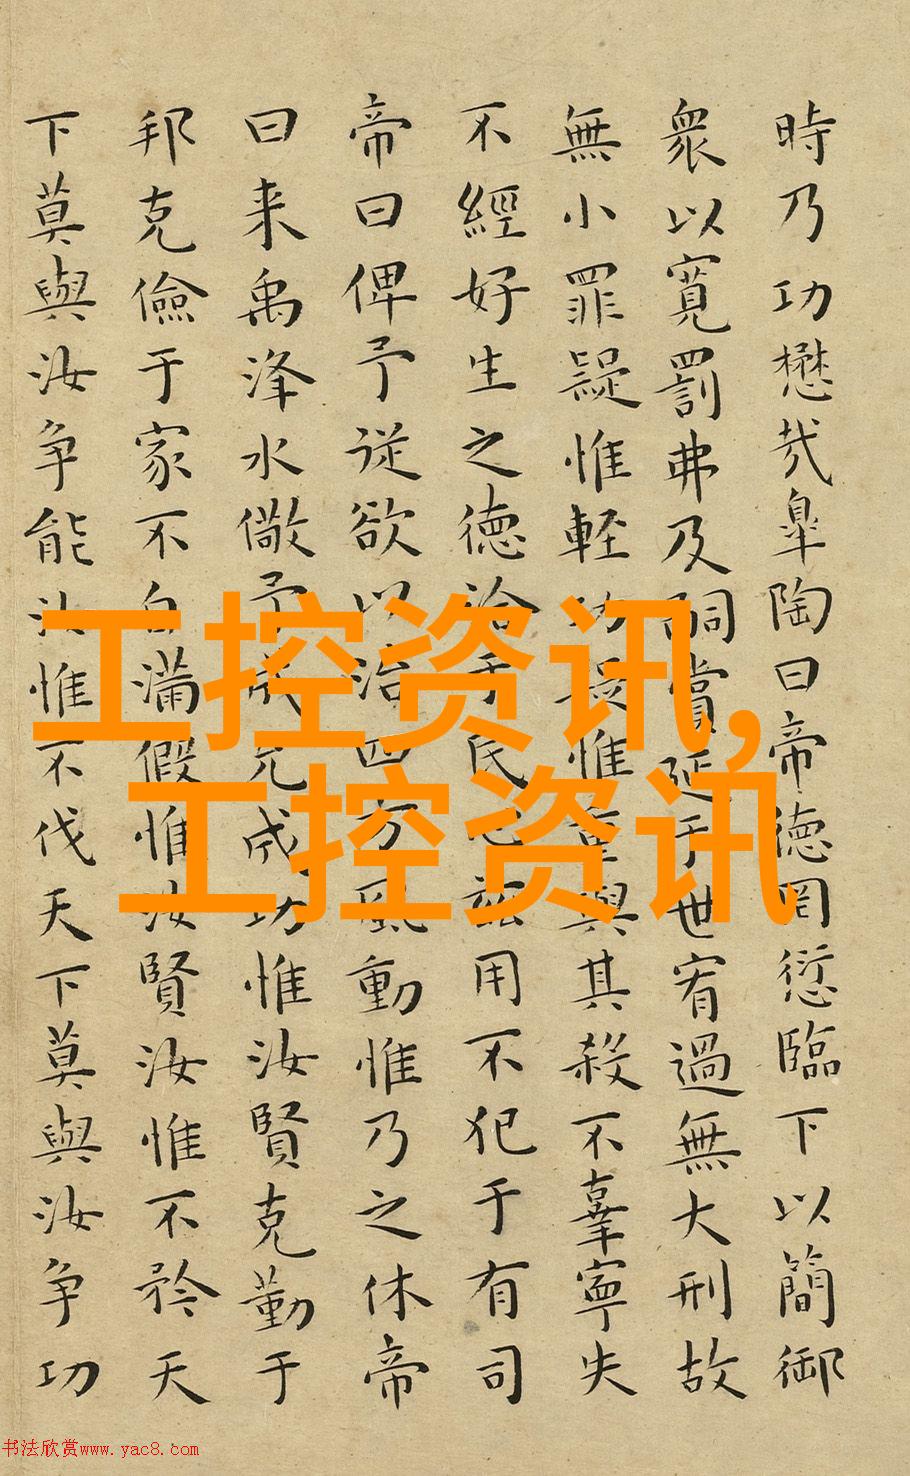 時乃功懋哉臯陶曰帝徳罔愆臨下以簡御
衆以寛罰弗及嗣賞延于世宥過無大刑故
無小罪疑惟軽功疑惟重與其殺不辜寧失
不經好生之徳洽于民心兹用不犯于有司
帝曰俾予従欲以治四方風動惟乃之休帝
曰来禹洚水儆予成允成功惟汝賢克勤于
邦克儉于家不自滿假惟汝賢汝惟不矜天
下莫與汝争能汝惟不伐天下莫與汝争功
工控资讯,
工控资讯
书法欣赏www.yac8.com